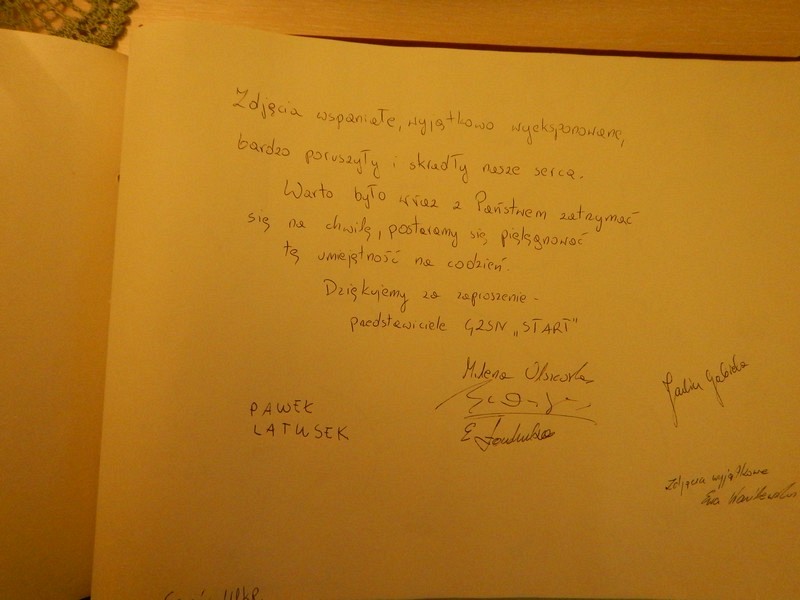 Zdjęcia wspaniałe, wyjątkowo wyeksponowane,
bardzo poruszyły i skradły nasze serca.
Warto było wraz z Państwem zatrzymać
się na chwilę, postaramy się pielęgnować
tę umiejętność na codzień.
Dziękujemy za zaproszenie -
przedstawiciele GZSN „START”
Milena
PAWEŁ
LATUSEK
E.
Zdjęcia wyjątkowe
Ewa